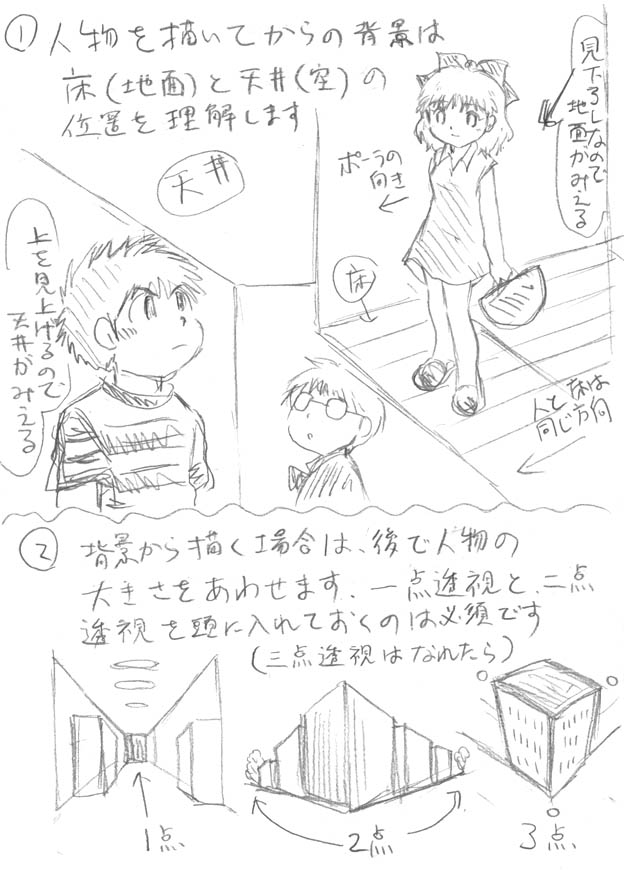 ① 人物を描いてからの背景は
床(地面)と天井(空)の
位置を理解します
見下ろしなので
地面がみえる
ポーラの
向き
天井
床
上を見上げるので
天井がみえる
人と床は
同じ方向
② 背景から描く場合は、後で人物の
大きさをあわせます、一点透視と、二点
透視を頭に入れておくのは必須です
(三点透視はなれたら)
1点
2点
3点